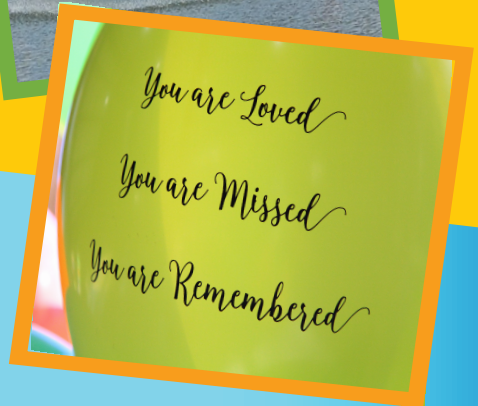 You are Loved
You are Missed
You are Remembered